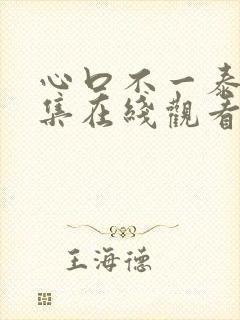 心口不一泰
集在綫觀看
王海德